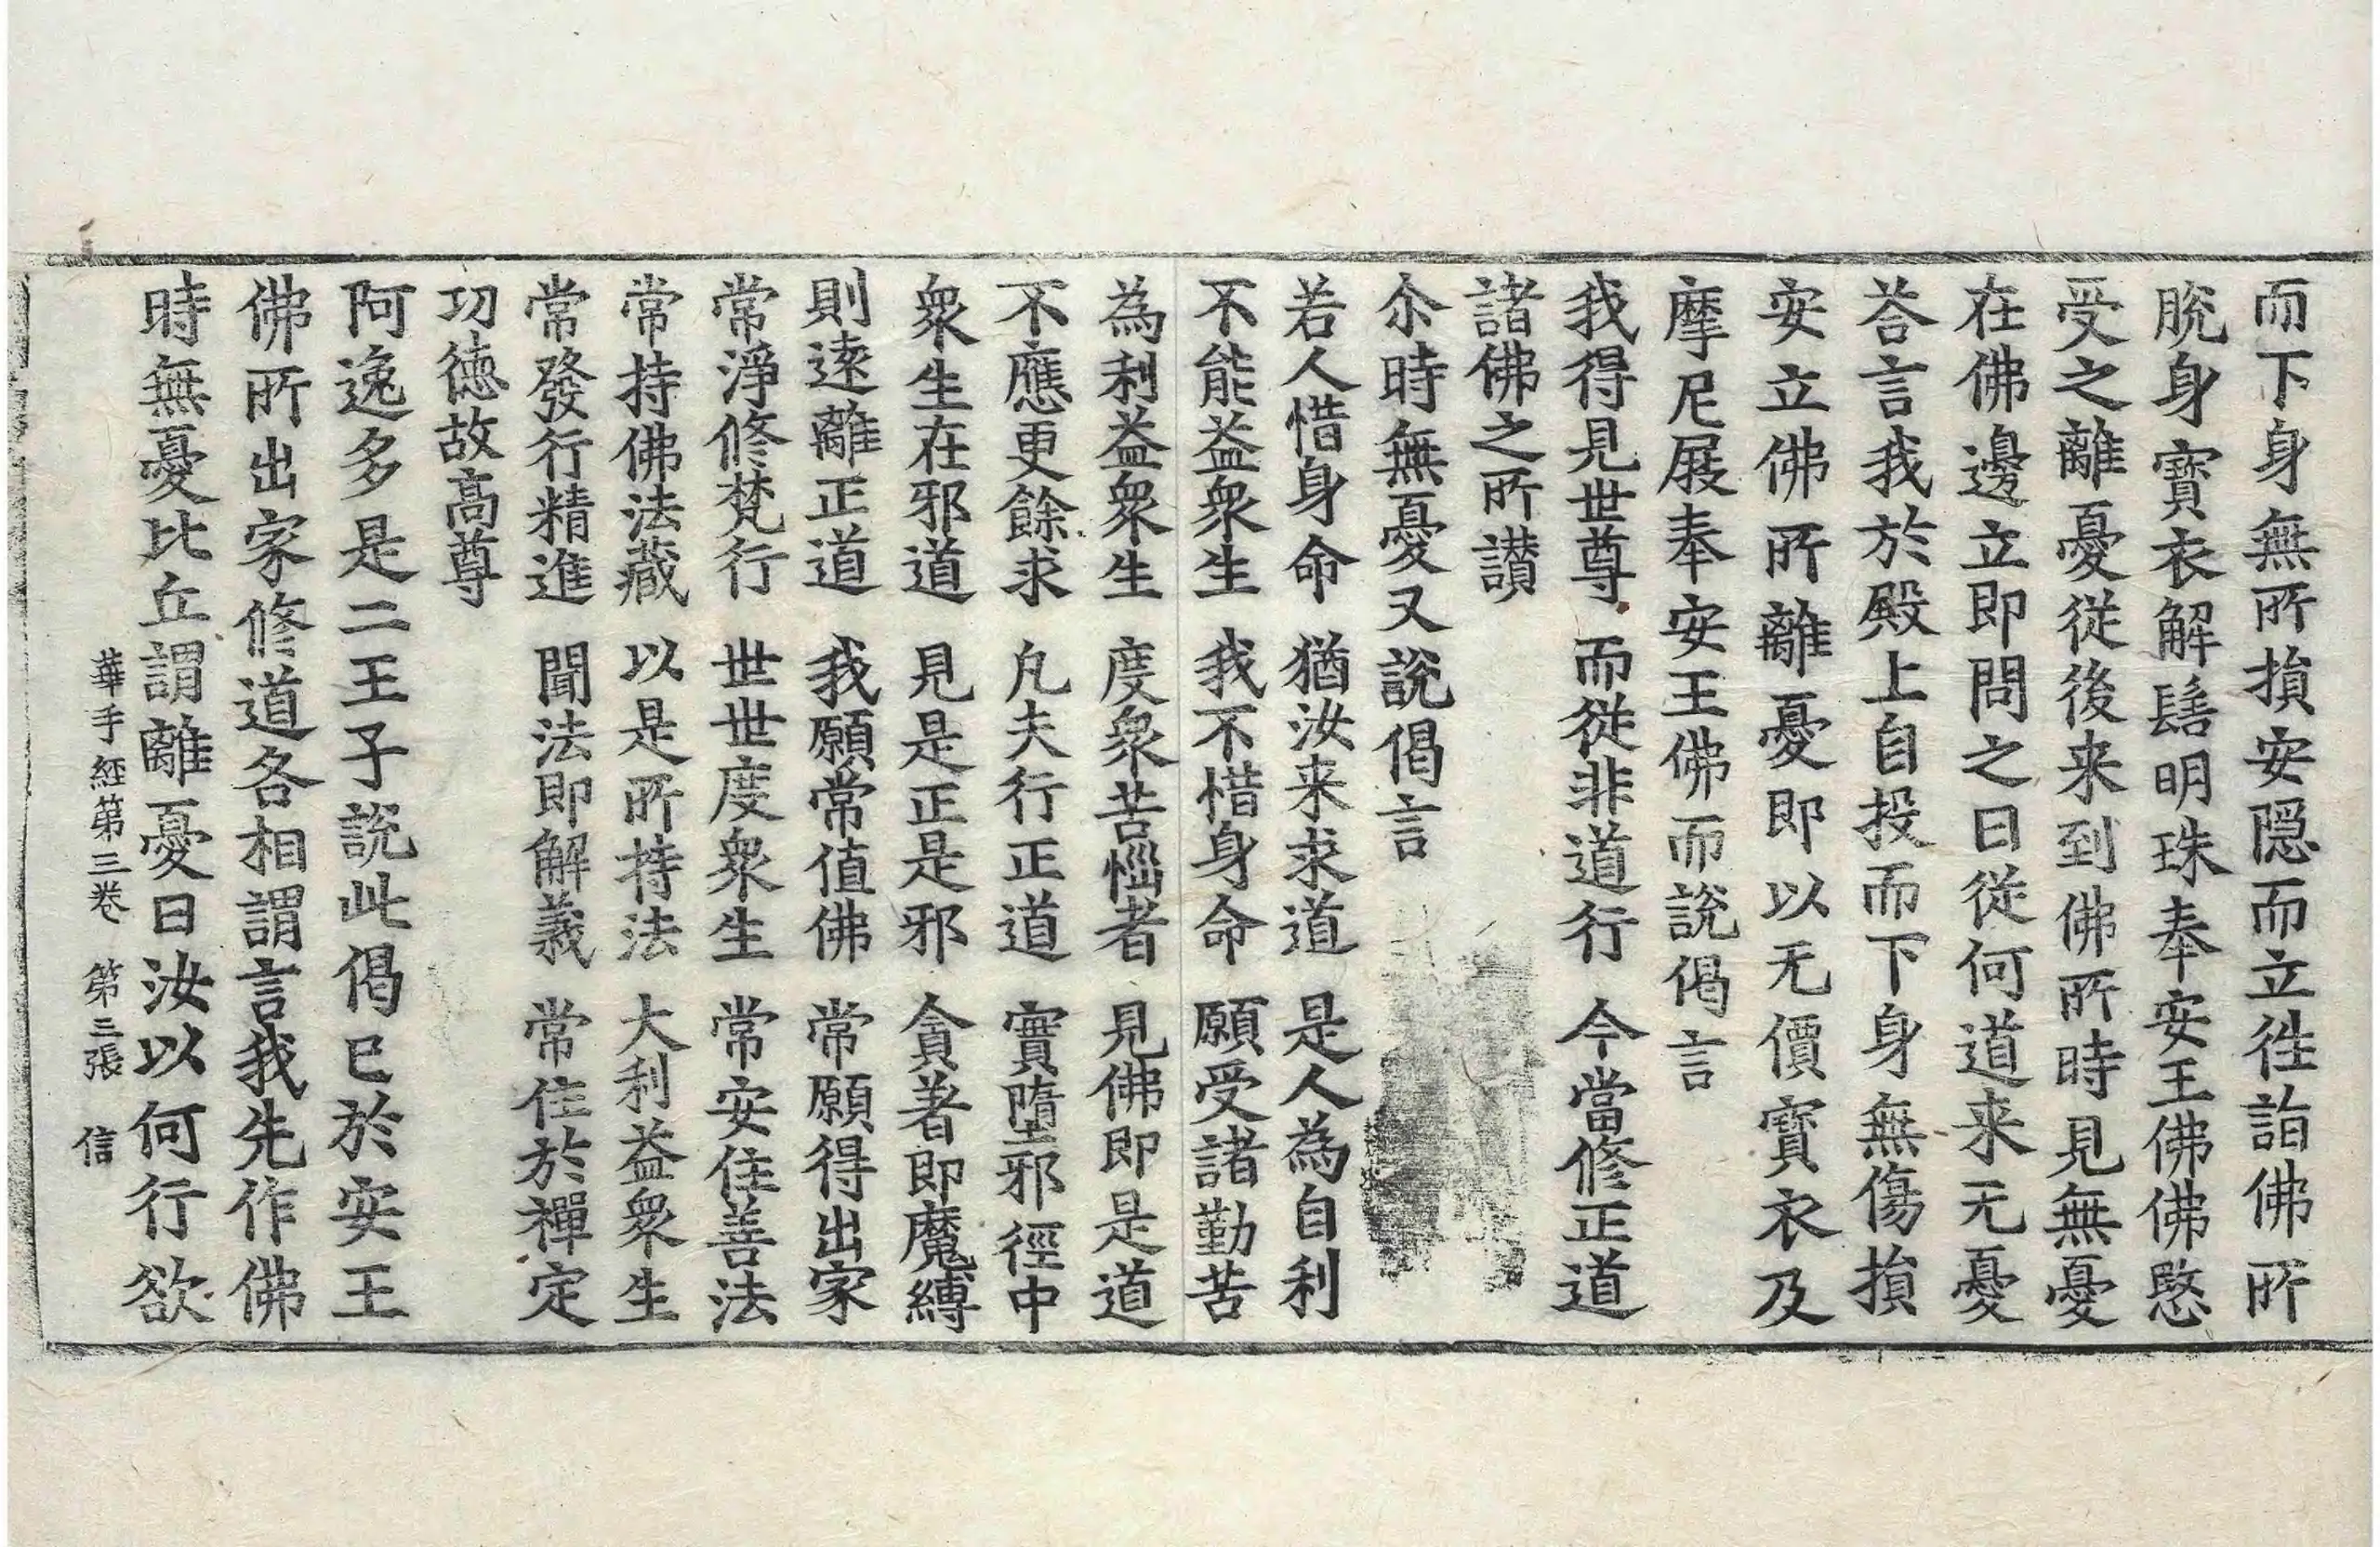 而下身無所損安隱而立徃詣佛所
脫身寶衣解髻明珠奉安王佛佛愍
受之離憂從後来到佛所時見無憂
在佛邊立即問之曰從何道来无憂
荅言我於殿上自投而下身無傷損
安立佛所離憂即以无價寶衣及
摩尼屐奉安王佛而說偈言
我得見世尊 而從非道行 今當修正道
諸佛之所讃
尒時無憂又說偈言
若人惜身命 猶汝来求道 是人為自利
不能益衆生 我不惜身命 願受諸勤苦
為利益衆生 度衆苦惱者 見佛即是道
不應更餘求 凡夫行正道 實墮邪徑中
衆生在邪道 見是正是邪 貪著即魔縛
則逺離正道 我願常值佛 常願得出家
常淨修梵行 世世度衆生 常安住善法
常持佛法藏 以是所持法 大利益衆生
常發行精進 聞法即解義 常住於禪定
功德故高尊
阿逸多是二王子說此偈已於安王
佛所出家修道各相謂言我先作佛
時無憂比丘謂離憂曰汝以何行欲
華手經第三卷 第三張 信